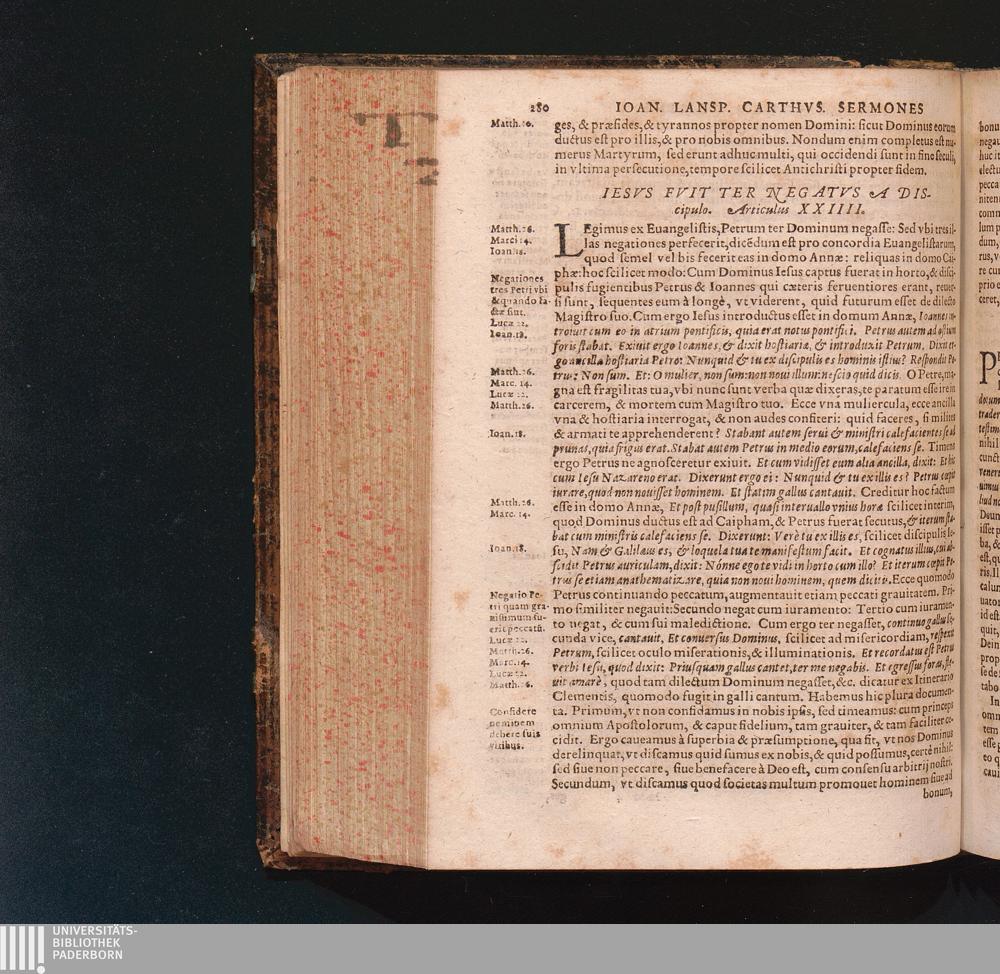 280 IOAN. LANSP. CARTHVS. SERMONES
Matth. 10.
ges, & præsides, & tyrannos propter nomen Domini: sicut Dominus eorum
ductus est pro illis, & pro nobis omnibus. Nondum enim completus est nu-
merus Martyrum, sed erunt adhuc multi, qui occidendi sunt in fine seculi,
in vltima persecutione, tempore scilicet Antichristi propter fidem.
IESVS FVIT TER NEGATVS A DIS-
cipulo. Articulus XXIIII.
Matth. 26.
Marci 14.
Ioan. 18.
LEgimus ex Euangelistis, Petrum ter Dominum negasse: Sed vbi tres il-
las negationes perfecerit, dicēdum est pro concordia Euangelistarum,
quod semel vel bis fecerit eas in domo Annæ: reliquas in domo Cai-
phæ: hoc scilicet modo: Cum Dominus Iesus captus fuerat in horto, & disci-
Negationes
tres Petri vbi
& quando fa-
ctæ sint.
Lucæ 22.
Ioan. 18.
pulis fugientibus Petrus & Ioannes qui cæteris feruentiores erant, reuer-
si sunt, sequentes eum à longè, vt viderent, quid futurum esset de dilecto
Magistro suo. Cum ergo Iesus introductus esset in domum Annæ, Ioannes in-
troiuit cum eo in atrium pontificis, quia erat notus pontifici. Petrus autem ad ostium
foris stabat. Exiuit ergo Ioannes, & dixit hostiariæ, & introduxit Petrum. Dixit er-
go ancilla hostiaria Petro: Nunquid & tu ex discipulis es hominis istius? Respondit Pe-
Matth. 26.
Marc. 14.
Lucæ 22.
Matth. 26.
trus: Non sum. Et: O mulier, non sum: non noui illum: nescio quid dicis. O Petre, ma-
gna est fragilitas tua, vbi nunc sunt verba quæ dixeras, te paratum esse ire in
carcerem, & mortem cum Magistro tuo. Ecce vna muliercula, ecce ancilla
vna & hostiaria interrogat, & non audes confiteri: quid faceres, si milites
Ioan. 18.
& armati te apprehenderent? Stabant autem serui & ministri calefacientes se ad
prunas, quia frigus erat. Stabat autem Petrus in medio eorum, calefaciens se. Timens
ergo Petrus ne agnosceretur exiuit. Et cum vidisset eum alia ancilla, dixit: Et hic
cum Iesu Nazareno erat. Dixerunt ergo ei: Nunquid & tu ex illis es? Petrus cœpit
iurare, quod non nouisset hominem. Et statim gallus cantauit. Creditur hoc factum
Matth. 26.
Marc. 14.
esse in domo Annæ, Et post pusillum, quasi interuallo vnius horæ scilicet interim,
quod Dominus ductus est ad Caipham, & Petrus fuerat secutus, & iterum sta-
bat cum ministris calefaciens se. Dixerunt: Verè tu ex illis es, scilicet discipulis Ie-
Ioan. 18.
su, Nam & Galilæus es, & loquela tua te manifestum facit. Et cognatus illius, cui ab-
scidit Petrus auriculam, dixit: Nónne ego te vidi in horto cum illo? Et iterum cœpit Pe-
trus se etiam anathematizare, quia non noui hominem, quem dicitis. Ecce quomodo
Negatio Pe-
tri quam gra-
uissimum fu-
erit peccatū.
Lucæ 22.
Matth. 26.
Marc. 14.
Lucæ 22.
Matth. 26.
Petrus continuando peccatum, augmentauit etiam peccati grauitatem. Pri-
mo similiter negauit: Secundo negat cum iuramento: Tertio cum iuramen-
to negat, & cum sui maledictione. Cum ergo ter negasset, continuo gallus se-
cunda vice, cantauit. Et conuersus Dominus, scilicet ad misericordiam, respexit
Petrum, scilicet oculo miserationis, & illuminationis. Et recordatus est Petrus
verbi Iesu, quod dixit: Priusquam gallus cantet, ter me negabis. Et egressus foras, fle-
uit amarè, quod tam dilectum Dominum negasset, &c. dicatur ex Itinerario
Clementis, quomodo fugit in galli cantum. Habemus hic plura documen-
Confidere
neminem
debere suis
viribus.
ta. Primum, vt non confidamus in nobis ipsis, sed timeamus: cum princeps
omnium Apostolorum, & caput fidelium, tam grauiter, & tam faciliter ce-
cidit. Ergo caueamus à superbia & præsumptione, qua sit, vt nos Dominus
derelinquat, vt discamus quid sumus ex nobis, & quid possumus, certè nihil:
sed siue non peccare, siue benefacere à Deo est, cum consensu arbitrij nostri.
Secundum, vt discamus quod societas multum promouet hominem siue ad
bonum,
UNIVERSITÄTS-
BIBLIOTHEK
PADERBORN